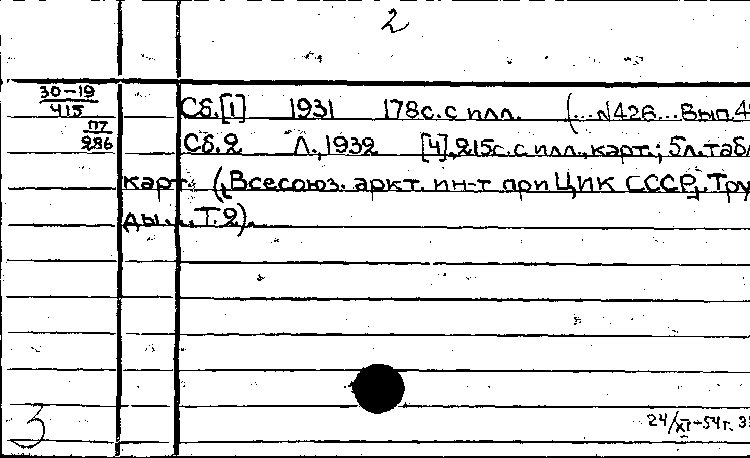 2
30-19
415
Сб.[1] 1931 178с. с илл. (...№426...Вып.4
П7
286
Сб.2 Л.,1932 [4],215с. с илл., карт.; 5л. табл
карт. ([Всесоюз. аркт. ин-т при ЦИК СССР]. Тру
ды... Т.2).
3
24/XI-54г. 3